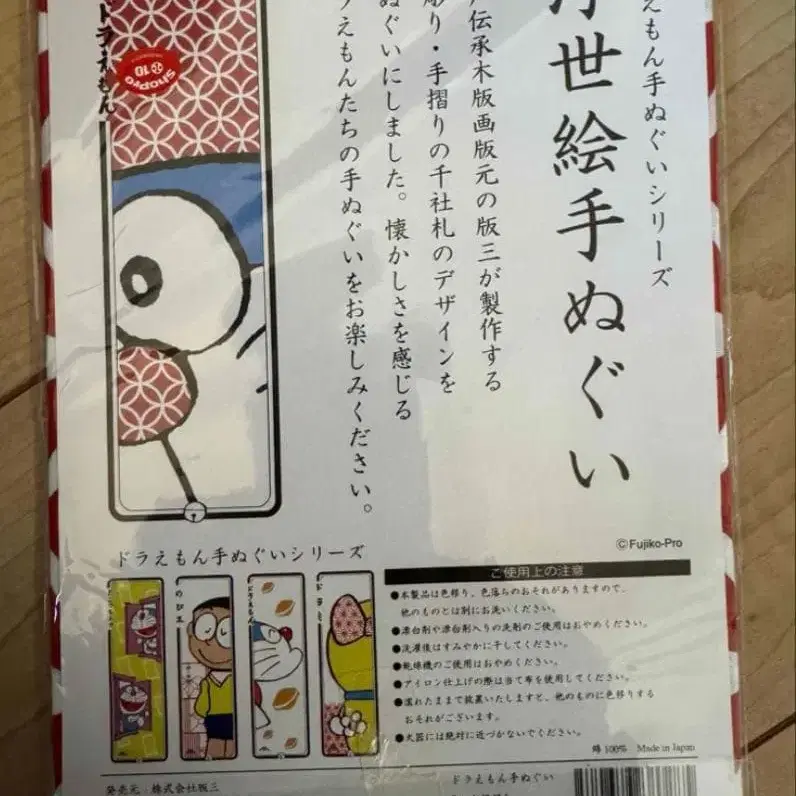 えもん手ぬぐいシリーズ
浮世絵手ぬぐい
伝承木版画版元の版三が製作する
彫り・手摺りの千社札のデザインを
ぬぐいにしました。懐かしさを感じる
ラえもんたちの手ぬぐいをお楽しみください。
ドラえもん
Shopro
10
©Fujiko-Pro
ドラえもん手ぬぐいシリーズ
のび太
ドラえもん
ドラミ
ご使用上の注意
●本製品は色移り、色落ちのおそれがありますので、
他のものとは別にお洗いください。
●漂白剤や漂白剤入りの洗剤のご使用はおやめください。
●洗濯後はすみやかに干してください。
●乾燥機のご使用はおやめください。
●アイロン仕上げの際は当て布を使用してください。
●濡れたままで放置いたしますと、他のものに色移りする
おそれがございます。
●火器には絶対に近づかないでください。
綿100% Made in Japan
発売元:株式会社版三
ドラえもん手ぬぐい